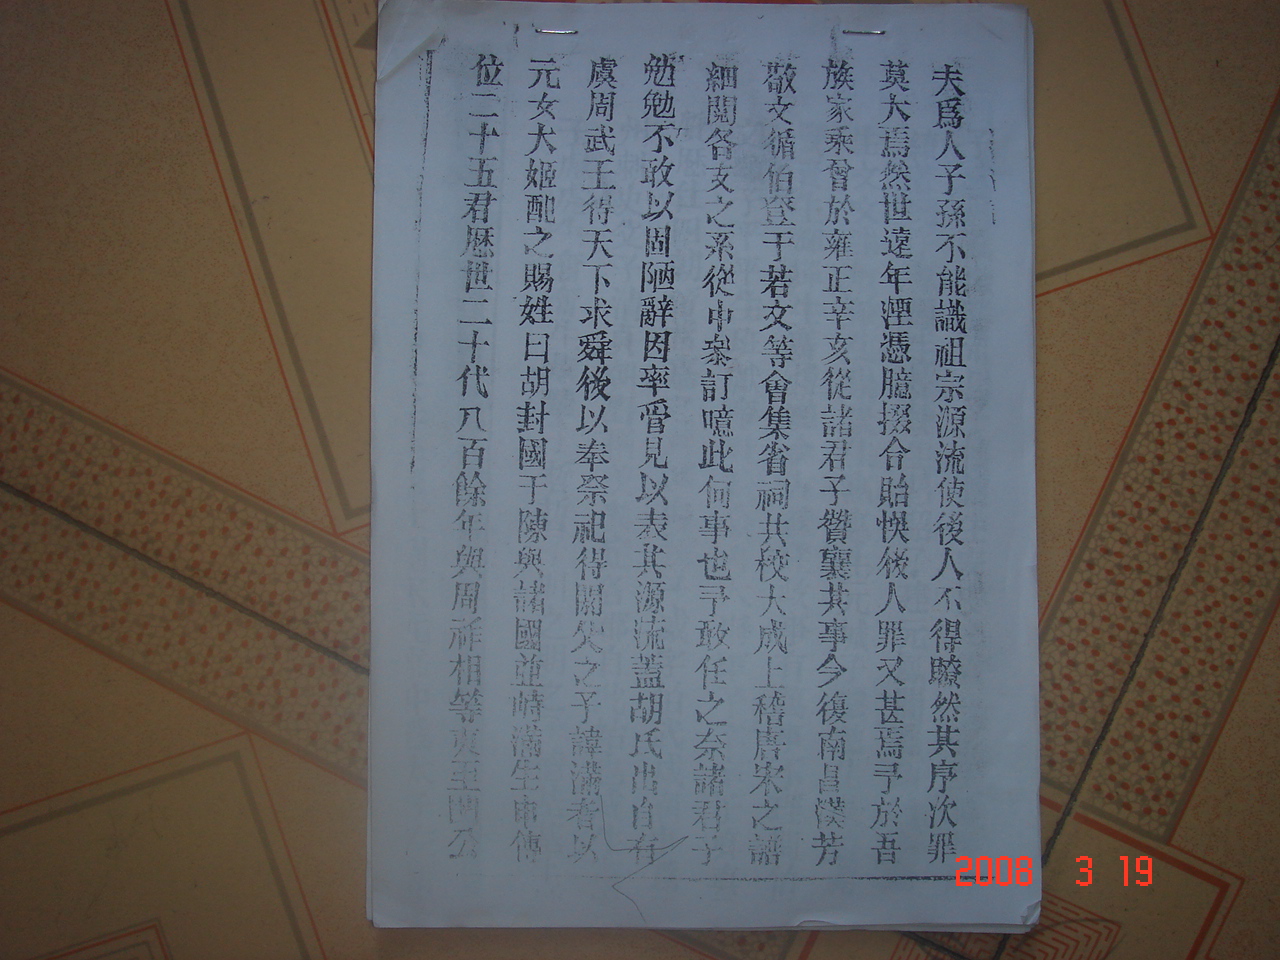 夫爲人子孫不能識祖宗源流使後人不得瞭然其序次罪
莫大焉然世遠年湮憑臆掇合貽悞後人罪又甚焉予於吾
族家乘曾於雍正辛亥從諸君子贊襄其事今復南昌漢芳
敬文循伯登于若文等會集省祠共校大成上稽唐宋之譜
細閱各支之系從中叅訂噫此何事也予敢任之奈諸君子
勉勉不敢以固陋辭因率管見以表其源流蓋胡氏出自有
虞周武王得天下求舜後以奉祭祀得閼父之子諱滿者以
元女大姬配之賜姓曰胡封國于陳與諸國並峙滿生申傳
位二十五君歷世二十代八百餘年與周祚相等 至 公
2008 3 19